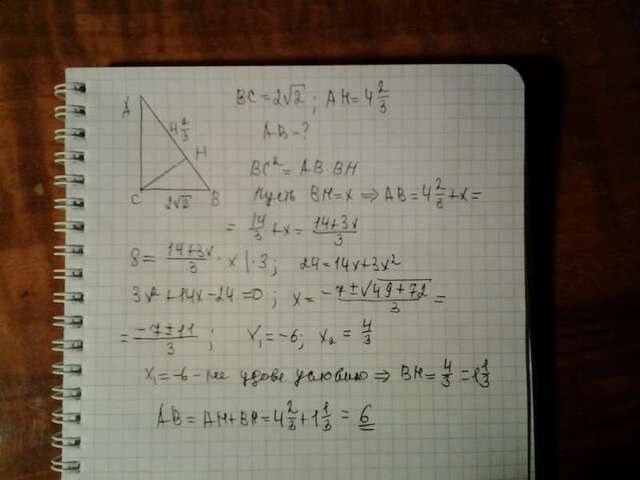 A
4 2/3
H
C
2√2
B
BC = 2√2 ; AH = 4 2/3
AB - ?
BC² = AB · BH
Пусть BH = x ⇒ AB = 4 2/3 + x =
= 14/3 + x = (14+3x)/3
8 = (14+3x)/3 · x | · 3 ; 24 = 14x + 3x²
3x² + 14x - 24 = 0 ; x = (-7 ± √(49 + 72))/3 =
= (-7 ± 11)/3 ; x₁ = -6 ; x₂ = 4/3
x₁ = -6 - не удовл условию ⇒ BH = 4/3 = 1 1/3
AB = AH + BH = 4 2/3 + 1 1/3 = 6